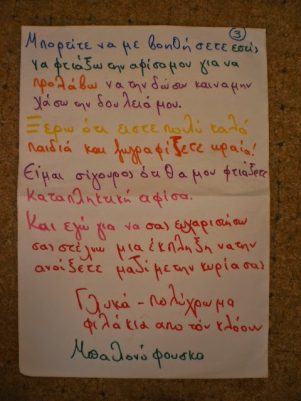 3
Μπορείτε να με βοηθήσετε εσείς
να φτιάξω την αφίσα μου για να
προλάβω να την δώσω και να μην
χάσω την δουλειά μου.
Ξέρω ότι είστε πολύ καλά
παιδιά και ζωγραφίζετε ωραία!
Είμαι σίγουρος ότι θα μου φτιάξετε
καταπληκτική αφίσα.
Και εγώ για να σας ευχαριστήσω
σας στέλνω μια έκπληξη να την
ανοίξετε μαζί με την κυρία σας
Γλυκά - πολύχρωμα
φιλάκια από τον κλόουν
Μπαλονόφουσκα